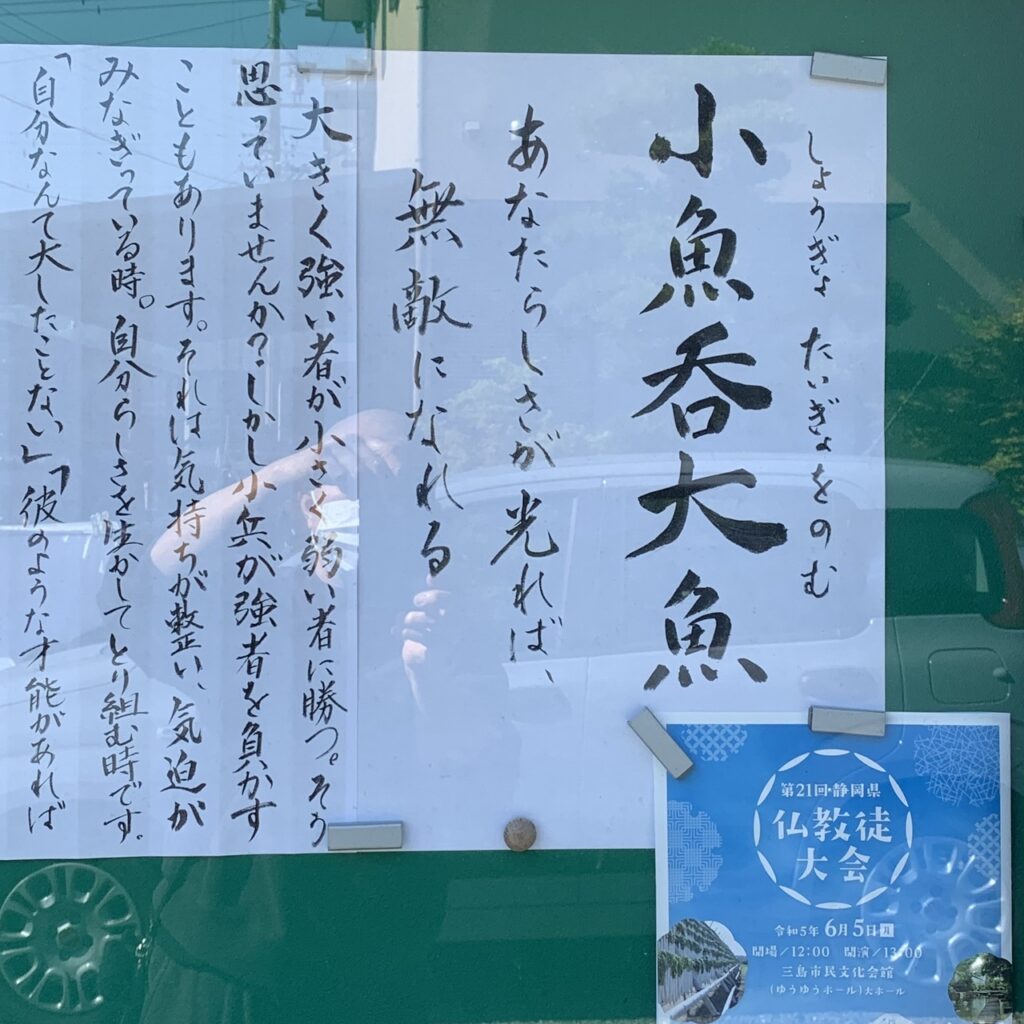 しょうぎょ たいぎょをのむ
小魚呑大魚
あなたらしさが光れば、
無敵になれる
大きく強い者が小さく弱い者に勝つ。そう
思っていませんか？しかし小兵が強者を負かす
こともあります。それは気持ちが整い、気迫が
みなぎっている時。自分らしさを生かしてとり組む時です。
「自分なんて大したことない」「彼のような才能があれば
第21回・静岡県
仏教徒
大会
令和5年 6月5日 月
開場／12:00 開演／13:00
三島市民文化会館
(ゆうゆうホール)大ホール